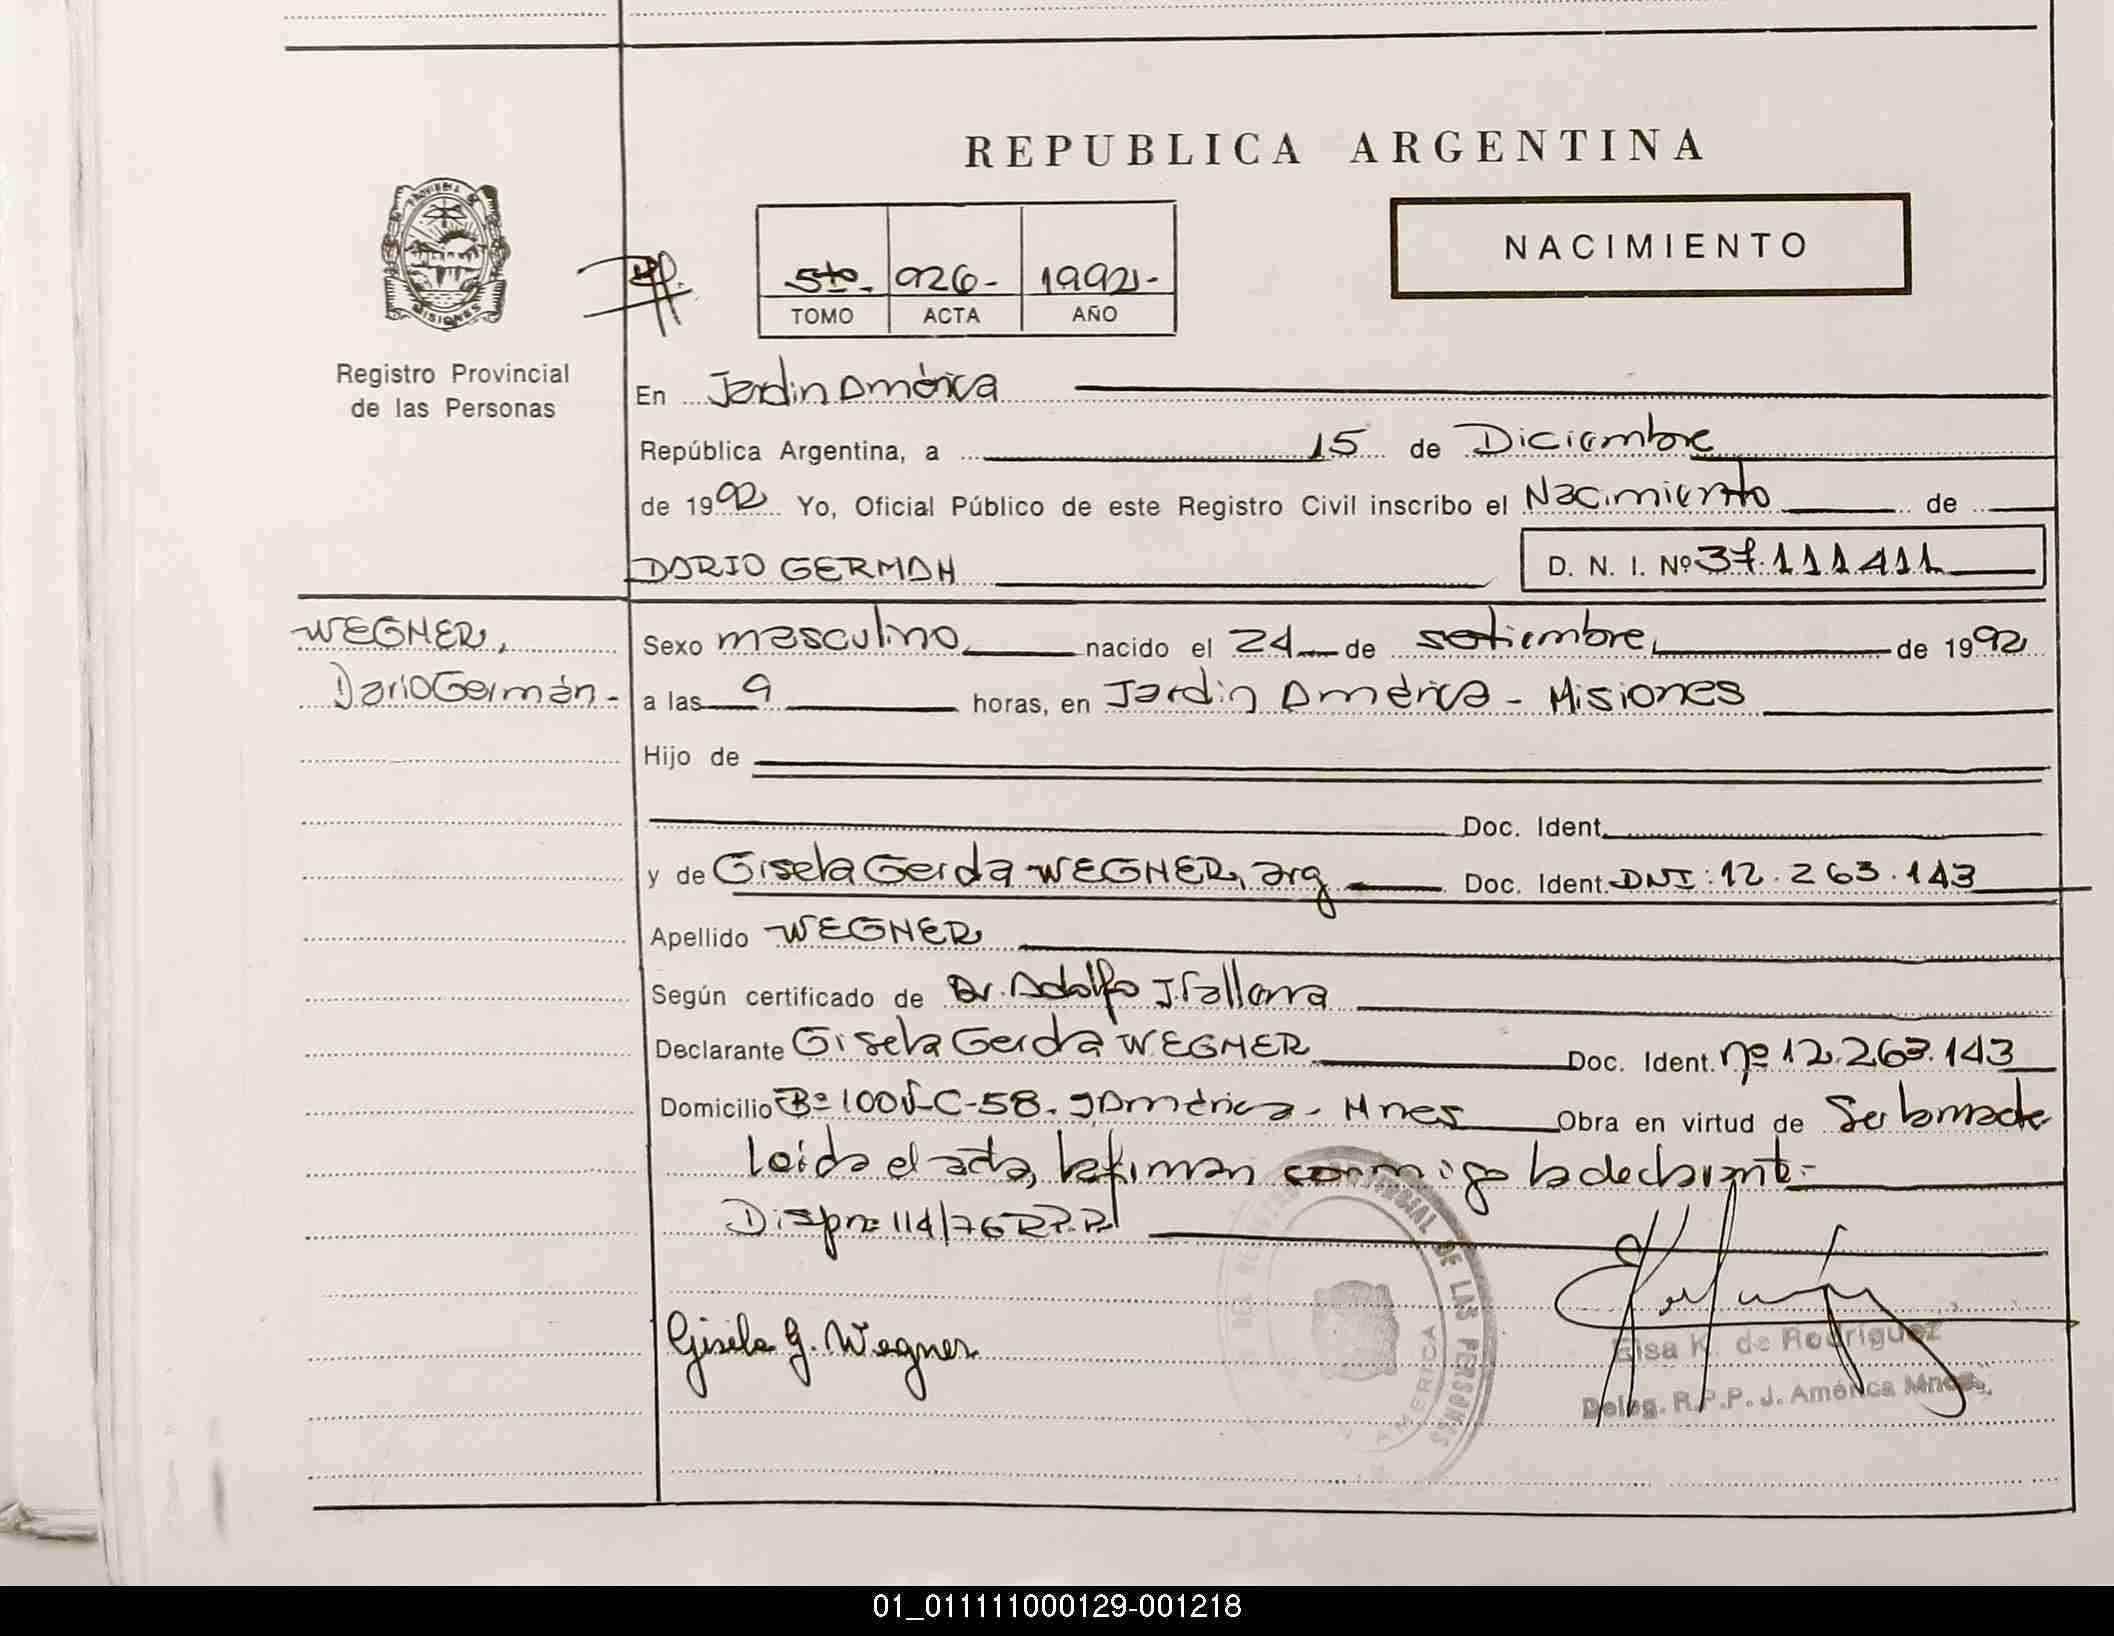 REPUBLICA ARGENTINA
NACIMIENTO
5to. 926- 1992-
TOMO ACTA AÑO
MISIONES
Registro Provincial
de las Personas
En Jardin América
República Argentina, a 15 de Diciembre
de 1992 Yo, Oficial Público de este Registro Civil inscribo el Nacimiento de
DARIO GERMAN D. N. I. Nº 37.111.411
WEGNER,
Dario Germán-
Sexo masculino nacido el 24 de setiembre de 1992
a las 9 horas, en Jardin América - Misiones
Hijo de
Doc. Ident.
y de Gisela Gerda WEGNER, arg Doc. Ident. DNI: 12.263.143
Apellido WEGNER
Según certificado de Dr. Adolfo J.
Declarante Gisela Gerda WEGNER Doc. Ident. nº 12.263.143
Domicilio Bº 100V-C-58. J América - Mnes Obra en virtud de Ser la madre
Leida el acta, la firman conmigo la declarante.-
Dispnº 114/76 R.P.P.
Gisela G. Wegner
DE LAS PERSONAS
AMERICA
Elsa K. de Rodriguez
Deleg. R.P.P. J. América Mnes.
01_011111000129-001218